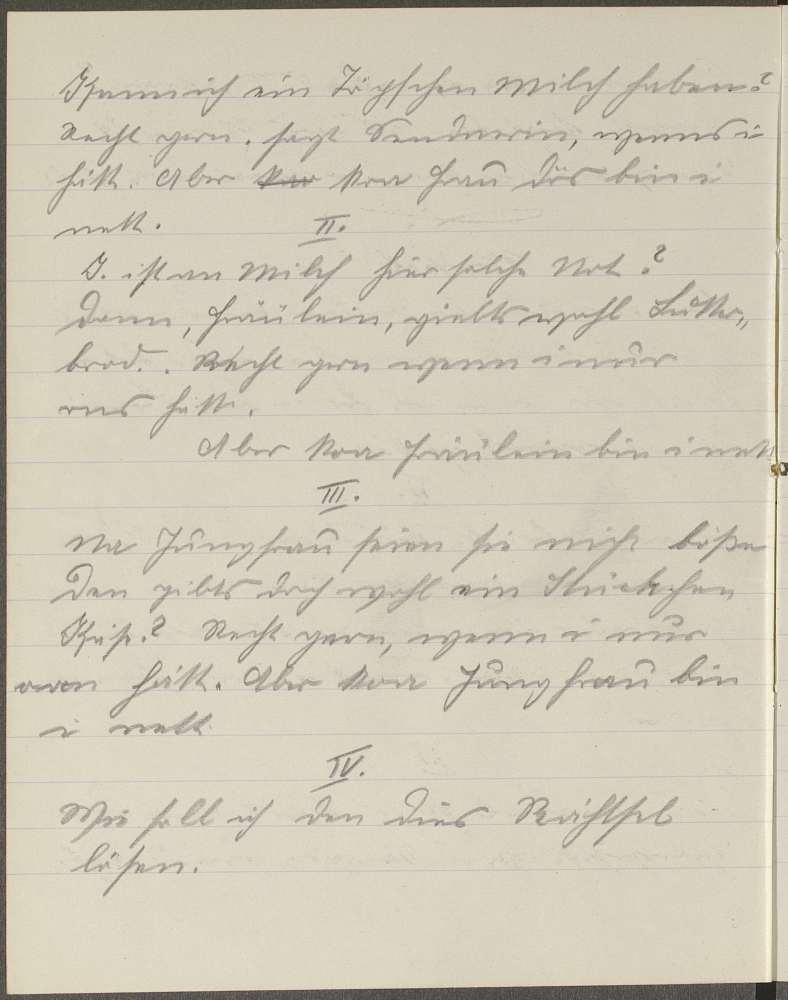 Kann ich ein Töpfchen Milch haben?
Recht gern. sagt Sendnerin, wenns i
hätt. Aber koa Frau dös bin i
nett.
II.
I. ist an Milch hier solche Not?
Dann, Fräulein, giebts wohl Butter„
brod.. Recht gern wenn i nur
ens hätt.
Aber koa Fräulein bin i nett
III.
Na Jungfrau seien sie nicht böße
Den gibts doch wohl ein Stückchen
Käse.? Recht gern, wenn i nur
oan hätt. Aber koa Jungfrau bin
i nett
IV.
Wie soll ich den dies Räthsel
lösen.